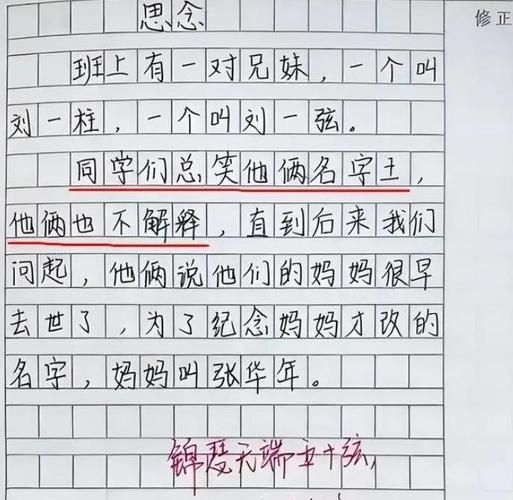 修正
思念
班上有一对兄妹，一个叫
刘一柱，一个叫刘一弦。
同学们总笑他俩名字土，
他俩也不解释，直到后来我们
问起，他俩说他们的妈妈很早
去世了，为了纪念妈妈才改的
名字，妈妈叫张华年。
锦瑟无端五十弦，